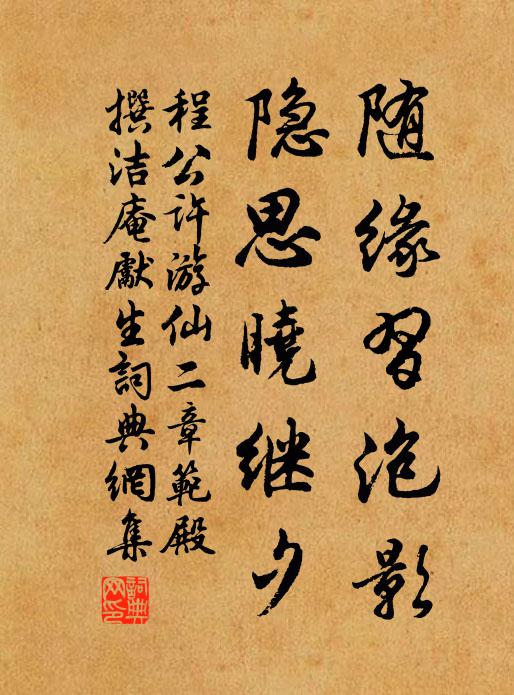 随缘習泡影
隐思曉继夕
程公许游仙二章範殿
撰洁庵獻生詞典網集
詞典网印